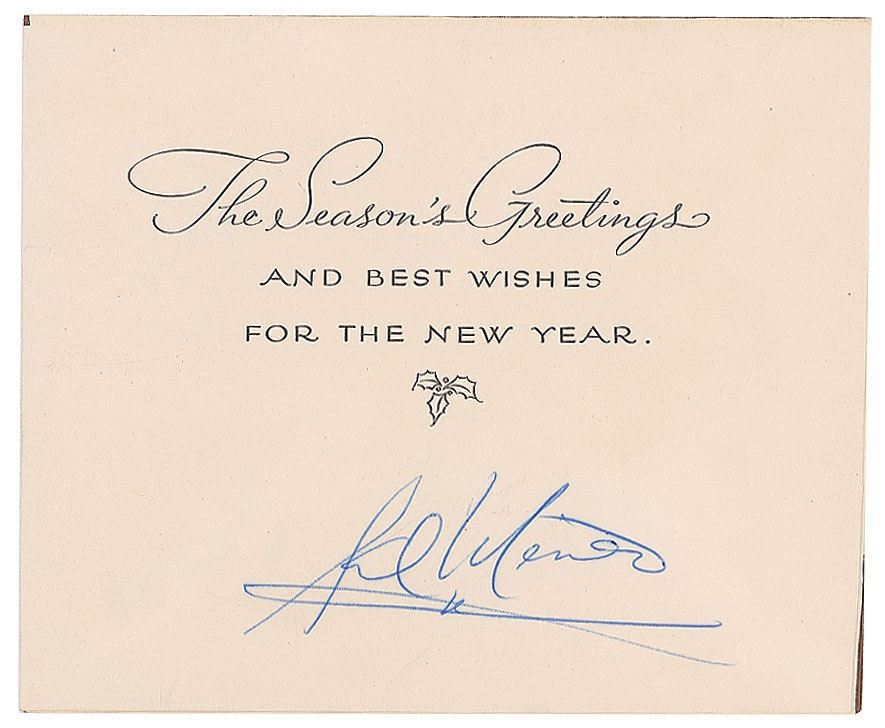 The Season's Greetings
AND BEST WISHES
FOR THE NEW YEAR.